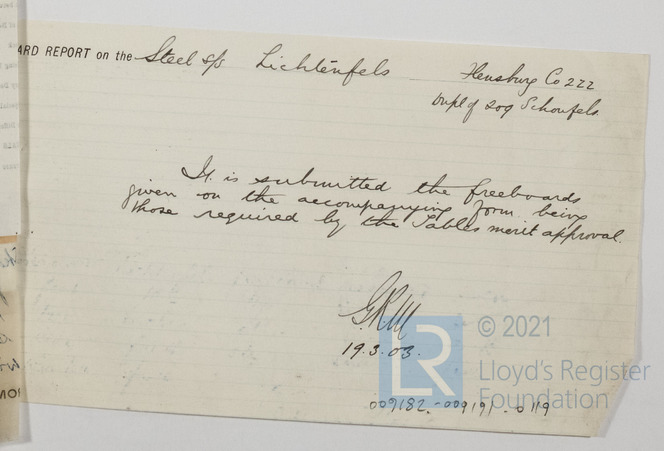 ARD REPORT on the Steel S/S Lichtenfels Flensburg Co 222
Dupl of 209 Schonfels.
It is submitted the freeboards
given on the accompanying form being
those required by the Tables merit approval.
GRM
19.3.03.
LR
© 2021
Lloyd's Register
Foundation
009182-009191-0119